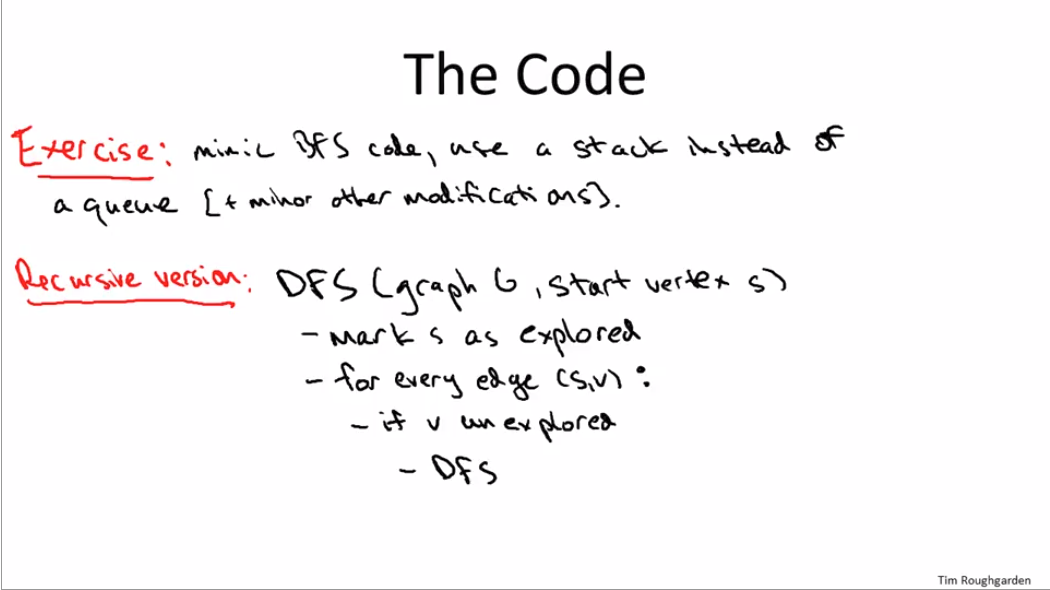 The Code
Exercise: mimic BFS code, use a stack instead of
a queue [+ minor other modifications].
Recursive version: DFS (graph G, start vertex s)
- mark s as explored
- for every edge (s,v) :
- if v unexplored
- DFS
Tim Roughgarden